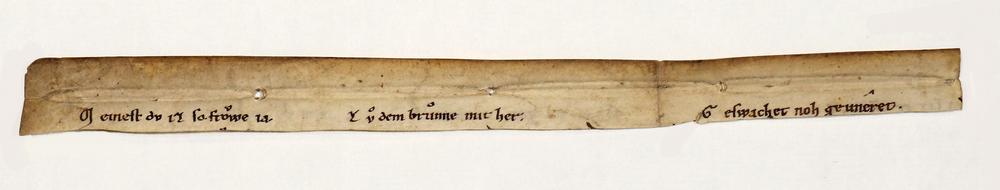 M einest dv iz so froͮwe ia.
Z vͦ dem bruͦnne mit her;
G eswachet noh geunêret.